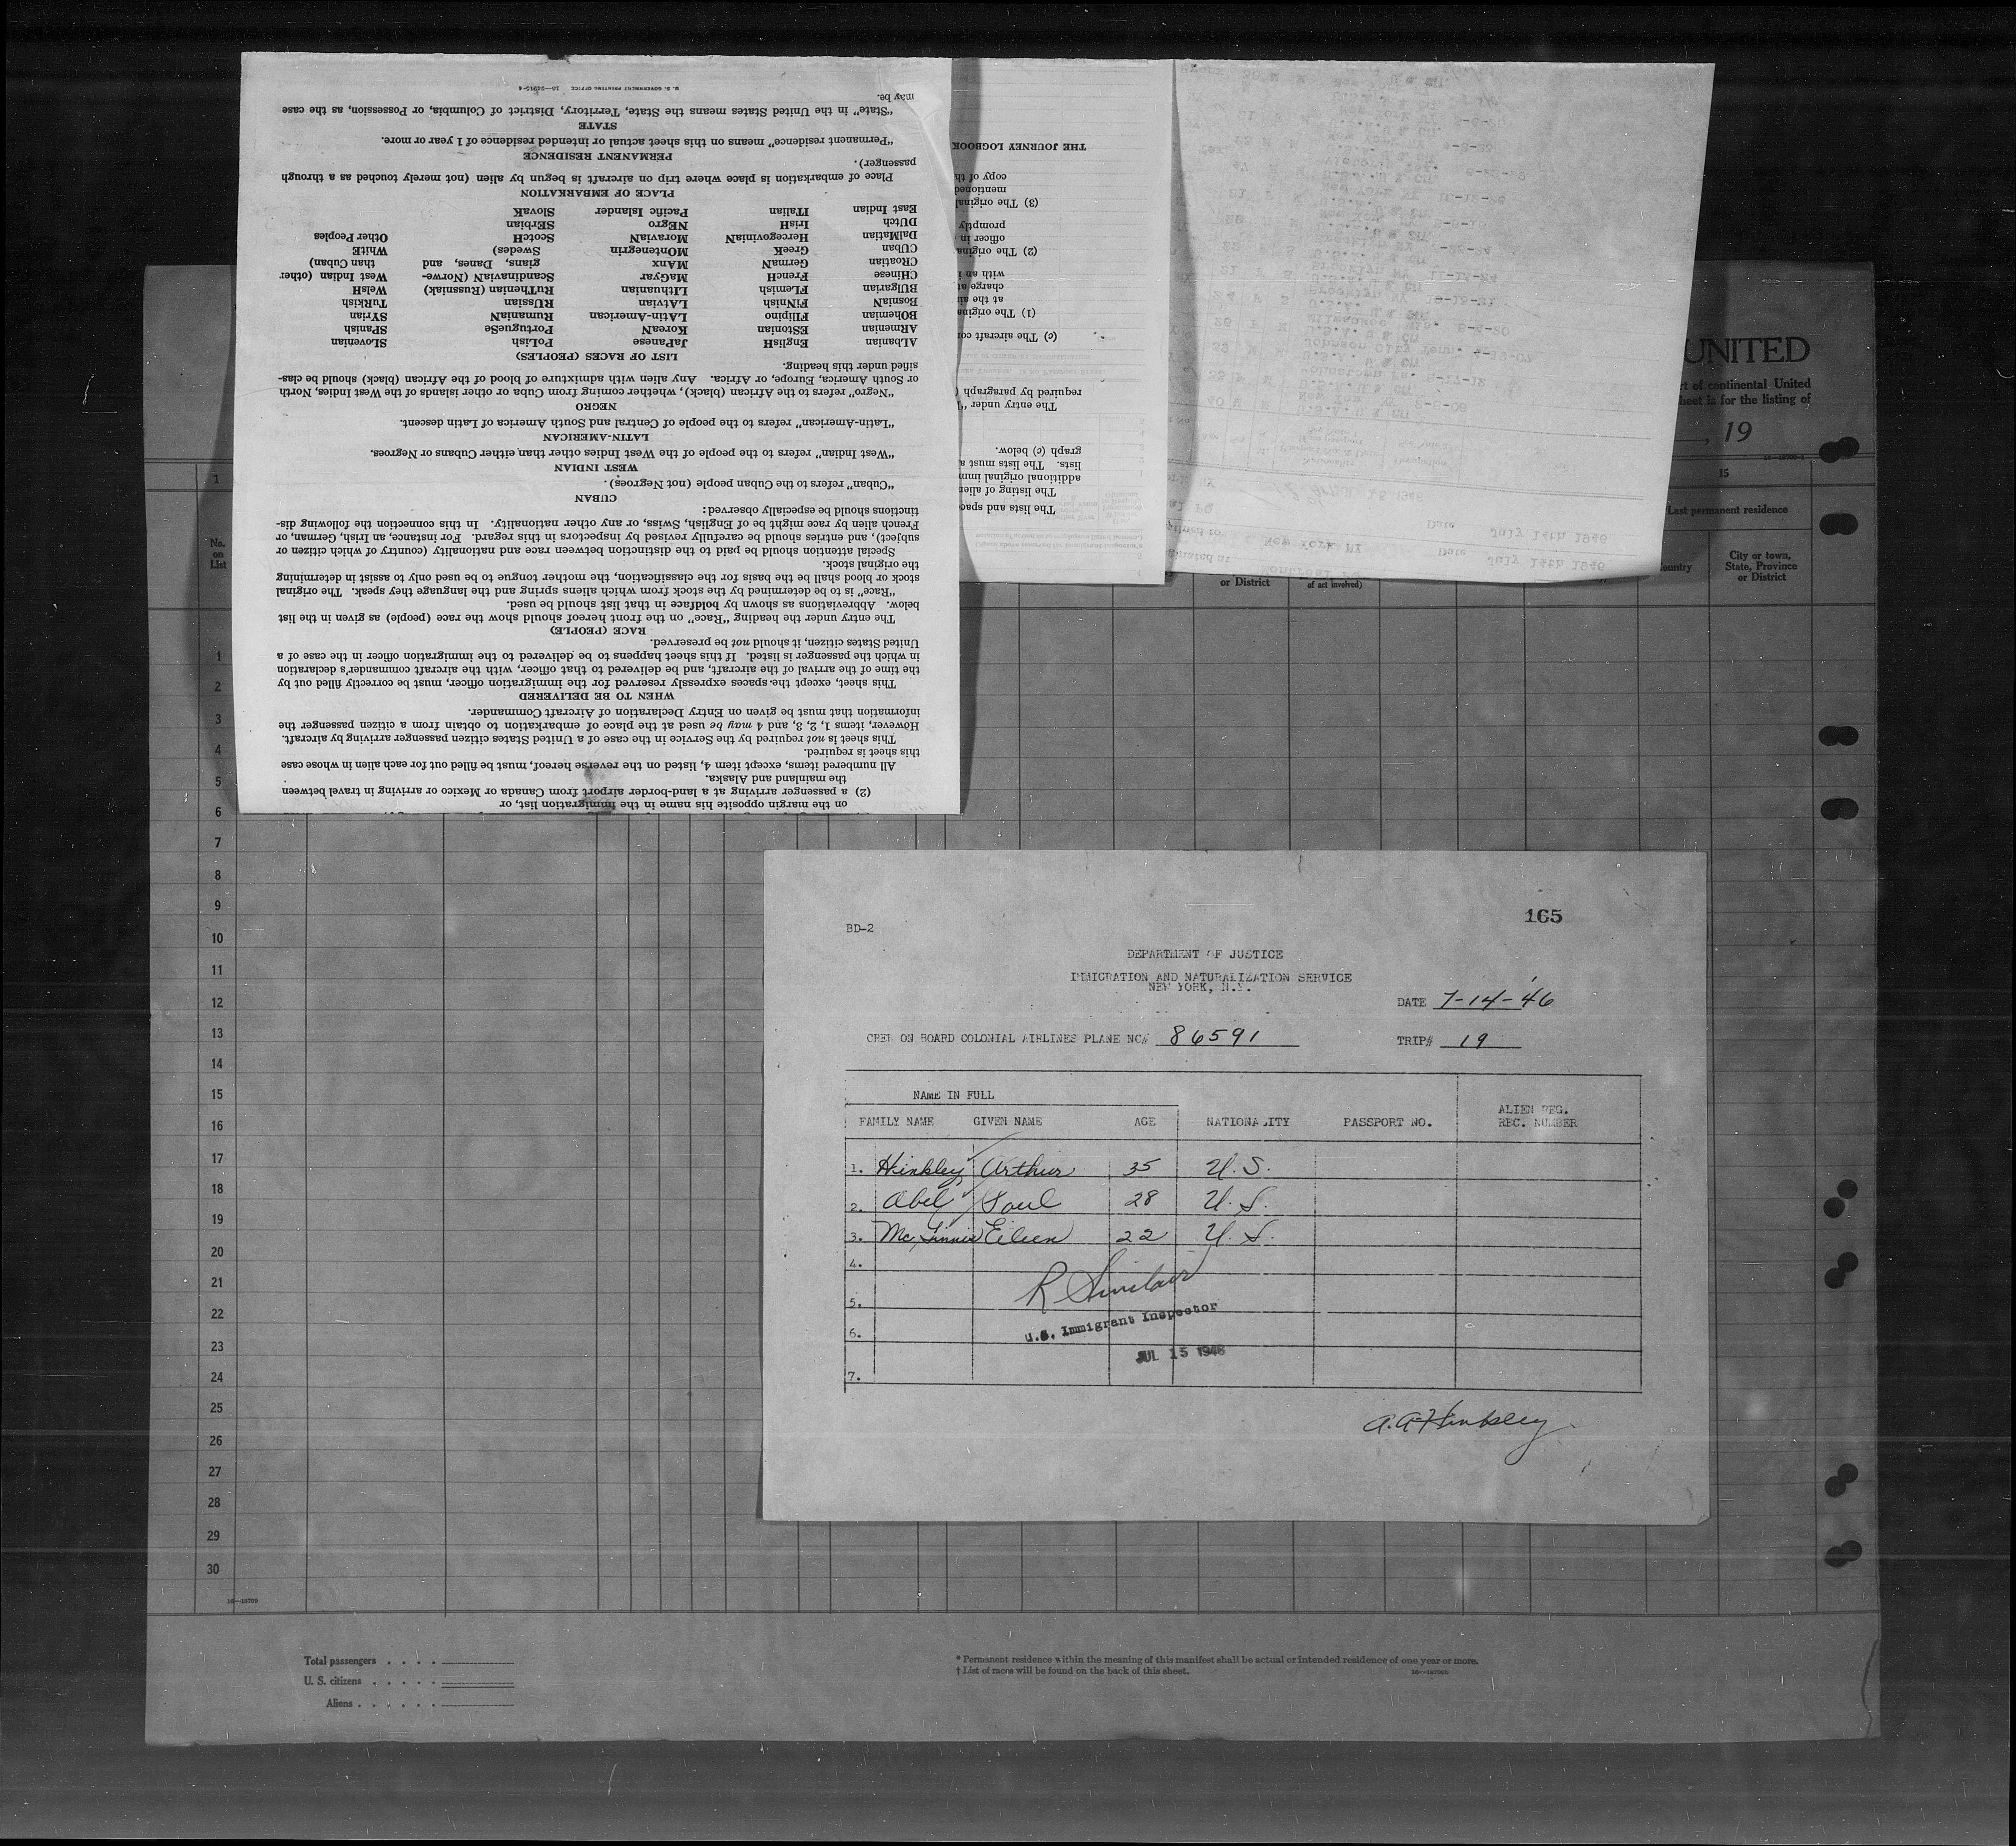 on the margin opposite his name in the immigration list, or
(2) a passenger arriving at a land-border airport from Canada or Mexico or arriving in travel between
the mainland and Alaska.
All numbered items, except item 4, listed on the reverse hereof, must be filled out for each alien in whose case
this sheet is required.
This sheet is not required by the Service in the case of a United States citizen passenger arriving by aircraft.
However, items 1, 2, 3, and 4 may be used at the place of embarkation to obtain from a citizen passenger the
information that must be given on Entry Declaration of Aircraft Commander.
WHEN TO BE DELIVERED
This sheet, except the spaces expressly reserved for the immigration officer, must be correctly filled out by
the time of the arrival of the aircraft, and be delivered to that officer, with the aircraft commander's declaration
in which the passenger is listed. If this sheet happens to be delivered to the immigration officer in the case of a
United States citizen, it should not be preserved.
RACE (PEOPLE)
The entry under the heading "Race" on the front hereof should show the race (people) as given in the list
below. Abbreviations as shown by boldface in that list should be used.
"Race" is to be determined by the stock from which aliens spring and the language they speak. The original
stock or blood shall be the basis for the classification, the mother tongue to be used only to assist in determining
the original stock.
Special attention should be paid to the distinction between race and nationality (country of which citizen or
subject), and entries should be carefully revised by inspectors in this regard. For instance, an Irish, German, or
French alien by race might be of English, Swiss, or any other nationality. In this connection the following dis-
tinctions should be especially observed:
CUBAN
"Cuban" refers to the Cuban people (not Negroes).
WEST INDIAN
"West Indian" refers to the people of the West Indies other than either Cubans or Negroes.
LATIN-AMERICAN
"Latin-American" refers to the people of Central and South America of Latin descent.
NEGRO
"Negro" refers to the African (black), whether coming from Cuba or other islands of the West Indies, North
or South America, Europe, or Africa. Any alien with admixture of blood of the African (black) should be clas-
sified under this heading.
LIST OF RACES (PEOPLES)
ALbanian EngliSH JaPanese PoLish SLovenian
ARmenian EStonian KoreaN PortugueSe SPanish
BOhemian FIlipino LAtin-American RumaniaN SYrian
BosniaN FiNnish LAtvian RUssian TurKish
BUlgarian FLemish LIthuanian RuThenian (Russniak) WelsH
CHinese FrencH MaGyar ScandinaviaN (Norwe- West Indian (other
CRoatian GermaN MAnx gians, Danes, and than Cuban)
CUban GreeK MOntenegrin Swedes) WhitE
DalMatian HercegoviniaN MoraviaN ScotcH Other Peoples
DUtch IrisH NEgro SErbian
East Indian ITalian Pacific Islander SlovaK
PLACE OF EMBARKATION
Place of embarkation is place where trip on aircraft is begun by alien (not merely touched as a through
passenger).
PERMANENT RESIDENCE
"Permanent residence" means on this sheet actual or intended residence of 1 year or more.
STATE
"State" in the United States means the State, Territory, District of Columbia, or Possession, as the case
may be.
U. S. GOVERNMENT PRINTING OFFICE
The lists and spac
The listing of alien
additional original imm
lists. The lists must a
graph (c) below.
The entry under "
required by paragraph (
(c) The aircraft co
(1) The origina
at the air
charge at
with an i
(2) The origina
officer in
promptly
(3) The original
mentioned
copy of th
THE JOURNEY LOGBOOK
Date July 14th 1946
New York NY Date July 14th 1946
UNITED
rt of continental United
heet is for the listing of
, 19
1 15
Last permanent residence
No.
on
List
or District
of act involved)
Country
City or town,
State, Province
or District
1
2
3
4
5
6
7
8
9
10
11
12
13
14
15
16
17
18
19
20
21
22
23
24
25
26
27
28
29
30
165
BD-2
DEPARTMENT OF JUSTICE
IMMIGRATION AND NATURALIZATION SERVICE
NEW YORK, N.Y.
DATE 7-14-'46
CREW ON BOARD COLONIAL AIRLINES PLANE NC# 86591 TRIP# 19
NAME IN FULL
FAMILY NAME GIVEN NAME AGE NATIONALITY PASSPORT NO. ALIEN REG. REC. NUMBER
1. Hinkley Arthur 35 U.S.
2. Abel Saul 28 U.S.
3. Mc Ginnis Eileen 22 U.S.
4.
R Sinclair
5.
U.S. Immigrant Inspector
6.
JUL 15 1946
7.
A.A. Hinkley
16—18709
Total passengers . . . .
U. S. citizens . . . . .
Aliens . . . . . .
* Permanent residence within the meaning of this manifest shall be actual or intended residence of one year or more.
† List of races will be found on the back of this sheet.